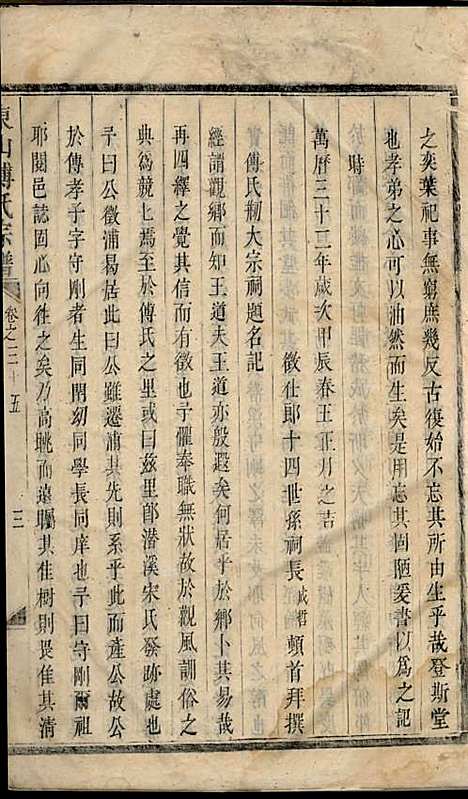 之奕葉祀事無窮庶幾反古復始不忘其所由生乎哉登斯堂
也孝弟之心可以油然而生矣是用忘其固陋爰書以為之記
時
萬曆三十二年歲次甲辰春王正月之吉
徵仕郎十四世孫祠長 成哲 頓首拜撰
傅氏剏大宗祠題名記
經謂觀鄉而知王道夫王道亦殷遐矣何居乎於鄉卜其易哉
再四繹之覺其信而有徵也予懼奉職無狀故於觀風訓俗之
典為兢上焉至於傅氏之里或曰兹里卽潜溪宋氏發跡處也
予曰公徵浦曷居此曰公雖遷浦其先則系乎此而產公故公
於傅孝子字守剛者生同閈幼同學長同庠也予曰守剛爾祖
耶閱邑誌固心向徃之矣乃高眺而遠矚其佳樹則畏佳其清
東山傅氏宗譜
卷之二十五
三